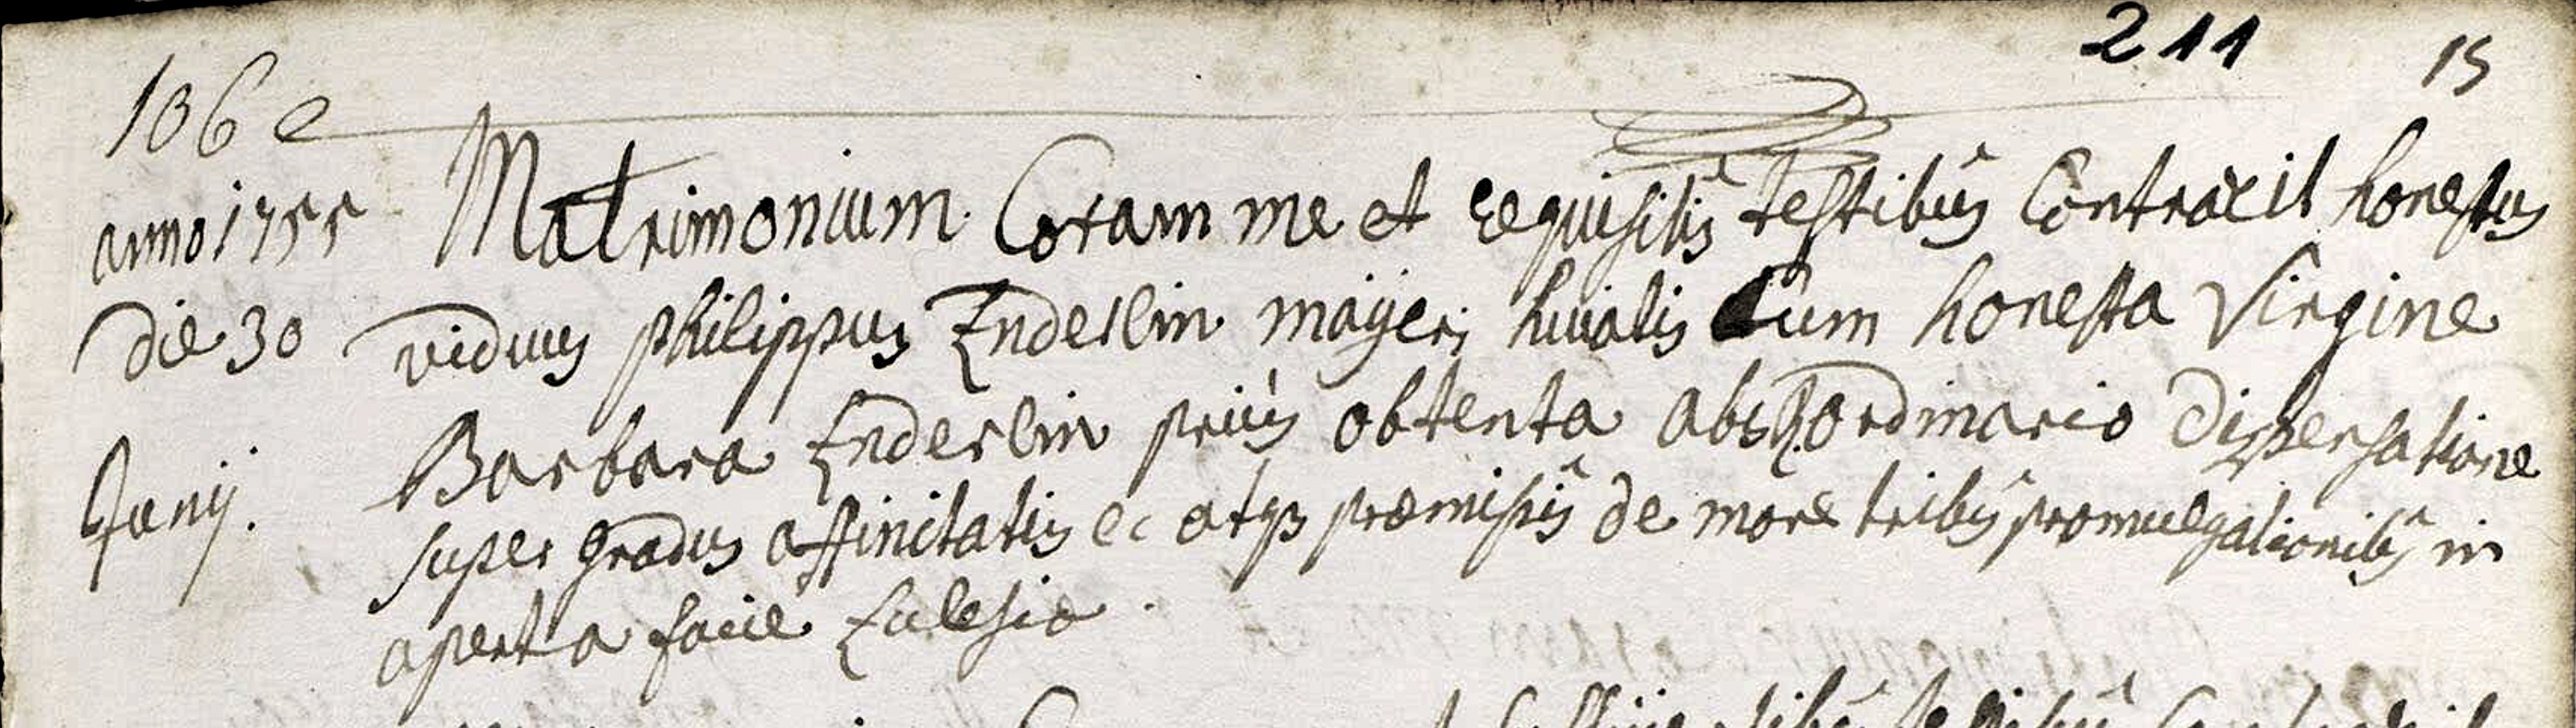 211 15
106 e
anno 1755 Matrimonium Coram me et requisitis testibus Contraxit honestus
die 30 viduus philippus Enderlin mayeri huiatis Cum honesta Virgine
Barbara Enderlin prius obtenta abs ordinario dispensatione
Junij. super gradus affinitatis ec atqз præmissis de more tribus promulgationibus in
aperta facie Eclesia.